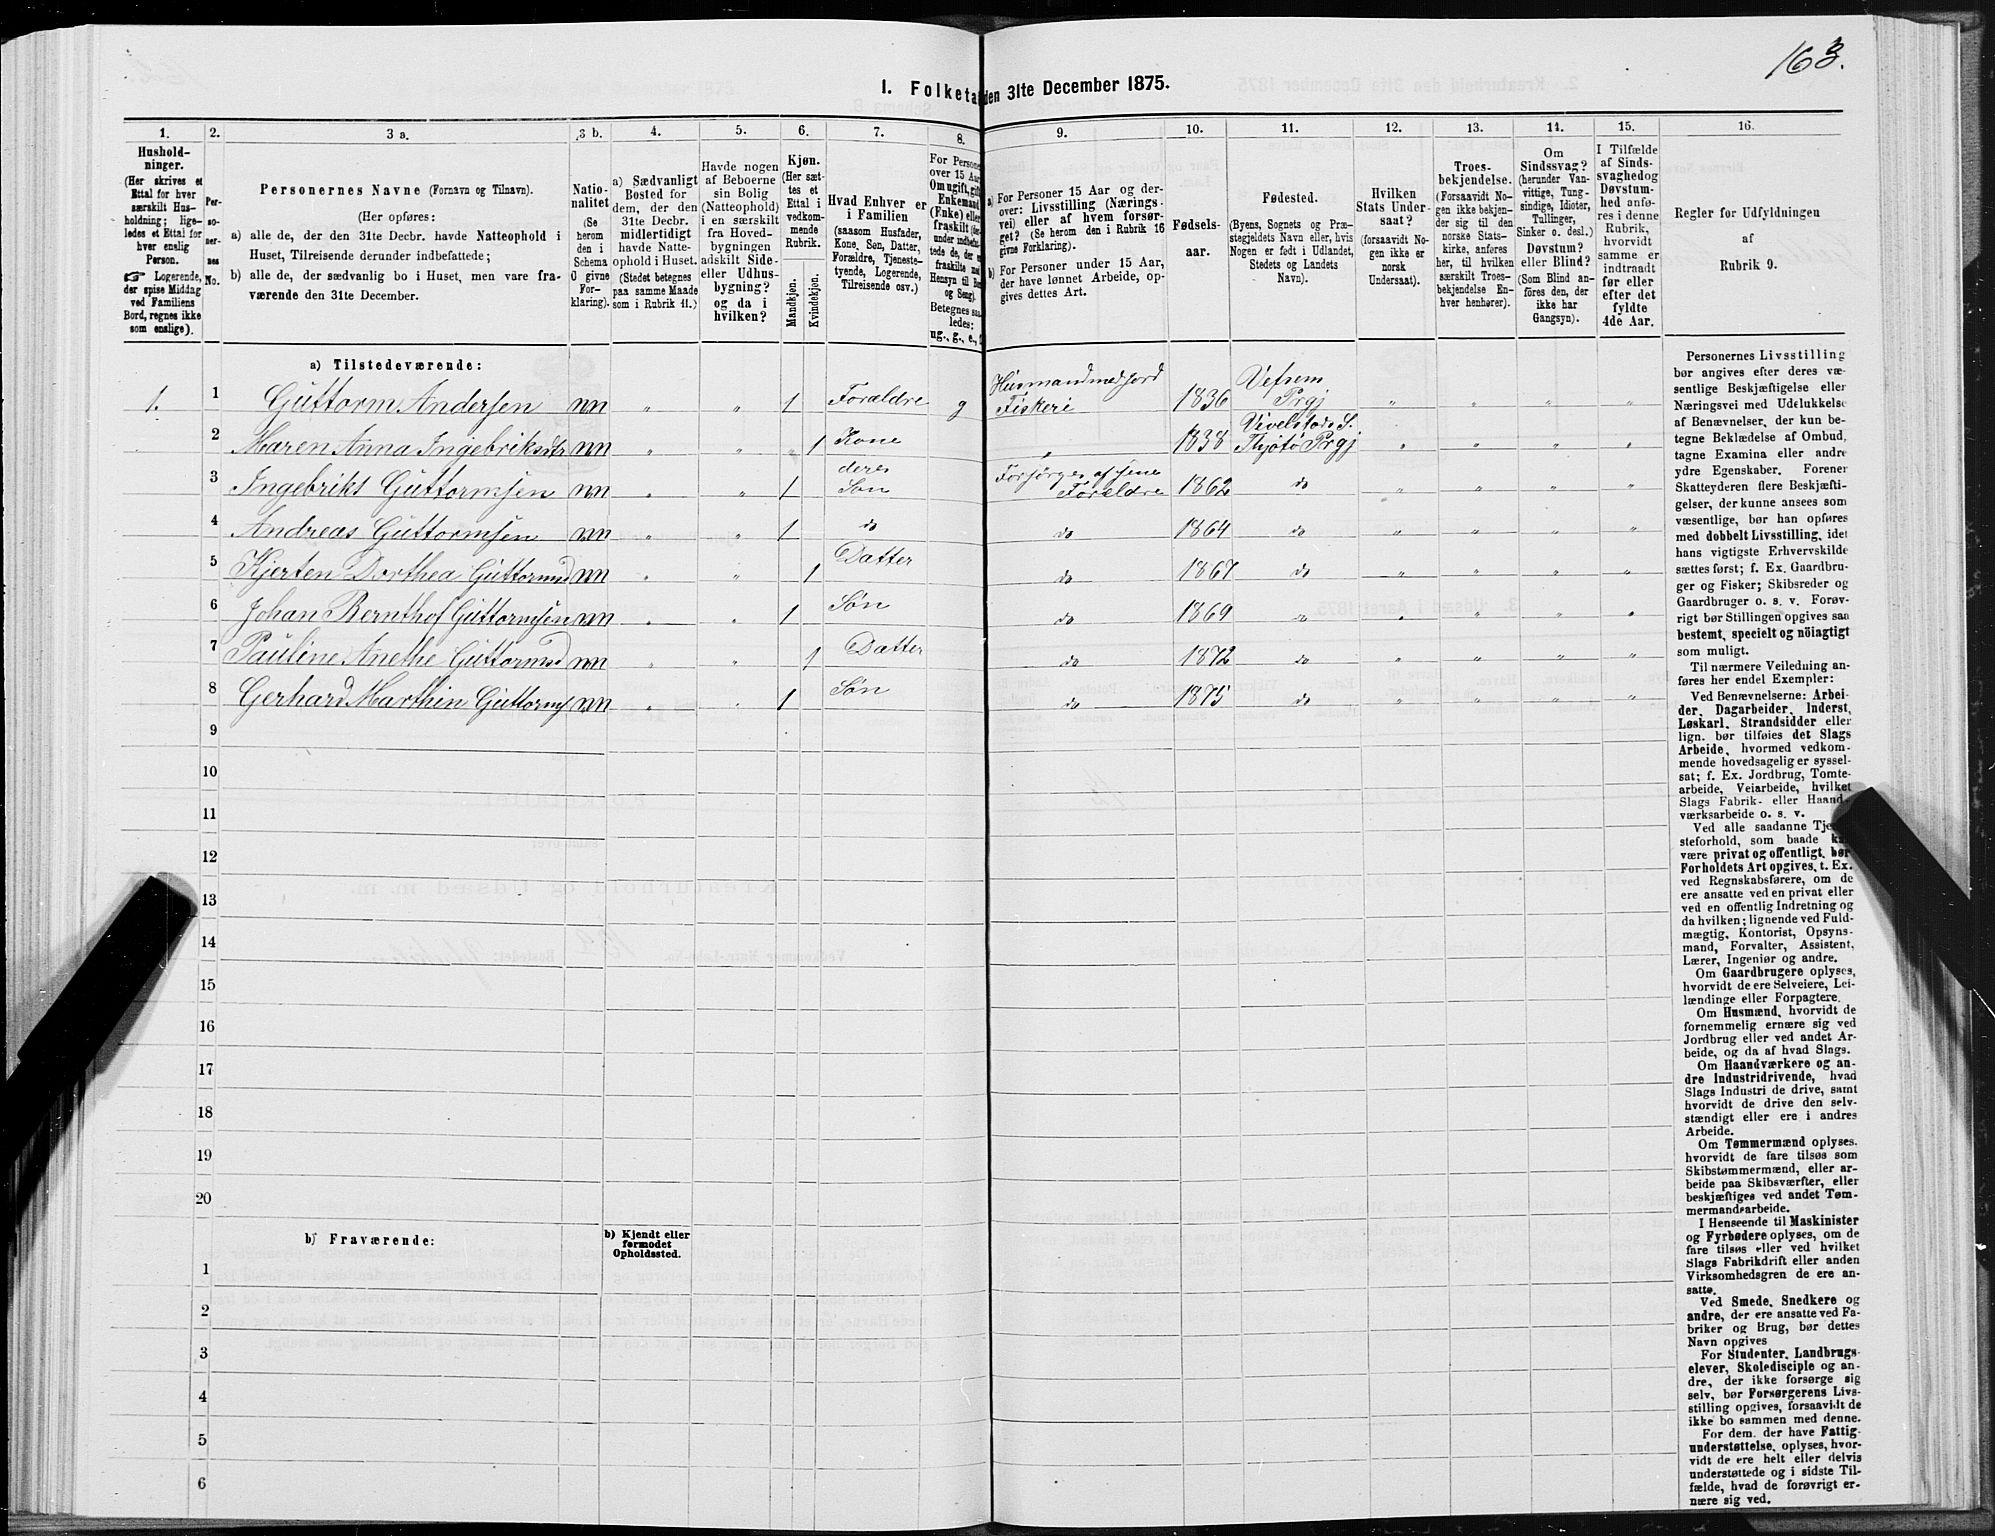 163.
I. Folketal den 31te December 1875.
1. 2. 3 a. 3 b. 4. 5. 6. 7. 8. 9. 10. 11. 12. 13. 14. 15. 16.
Hushold-
ninger.
(Her skrives et
Ettal for hver
særskilt Hus-
holdning; lige-
ledes et Ettal for
hver enslig
Person.
☞ Logerende,
der spise Middag
ved Familiens
Bord, regnes ikke
som enslige).
Per-
so-
ner-
nes
No.
Personernes Navne (Fornavn og Tilnavn).
(Her opføres:
a) alle de, der den 31te Decbr. havde Natteophold i
Huset, Tilreisende derunder indbefattede;
b) alle de, der sædvanlig bo i Huset, men vare fra-
værende den 31te December.
Natio-
nalitet
(Se
herom
den i
Schema
O givne
For-
klaring).
a) Sædvanligt
Bosted for
dem, der den
31te Decbr.
midlertidigt
havde Natte-
ophold i Huset.
(Stedet betegnes
paa samme Maade
som i Rubrik 11.)
Havde nogen
af Beboerne
sin Bolig
(Natteophold)
i en særskilt
fra Hoved-
bygningen
adskilt Side-
eller Udhus-
bygning?
og da i
hvilken?
Kjøn.
(Her sæt-
tes et
Ettal i
vedkom-
mende
Rubrik.
Mandkjøn.
Kvindekjøn.
Hvad Enhver er
i Familien
(saasom Husfader,
Kone, Søn, Datter,
Forældre, Tjeneste-
tyende, Logerende,
Tilreisende osv.)
For Persone
over 15 Aar
Om ugift, gift
Enkemand
(Enke) eller
fraskilt
Betegnes saa-
ledes:
ug., g., e.,
a) For Personer 15 Aar og der-
over: Livsstilling (Nærings-
vei) eller af hvem forsør-
get? (Se herom den i Rubrik 16
givne Forklaring).
b) For Personer under 15 Aar,
der have lønnet Arbeide, op-
gives dettes Art.
Fødsels-
aar.
Fødested.
(Byens, Sognets og Præ-
stegjeldets Navn eller, hvis
Nogen er født i Udlandet,
Stedets og Landets
Navn).
Hvilken
Stats Under-
saat?
(forsaavidt No-
gen ikke er
norsk
Undersaat).
Troes-
bekjendelse.
(Forsaavidt No-
gen ikke bekjen-
der sig til den
norske Stats-
kirke, anføres
her, til hvilken
særskilt Troes-
bekjendelse En-
hver henhører).
Om
Sindssvag?
(herunder Van-
vittige, Tung-
sindige, Idioter,
Tullinger,
Sinker o. desl.)
Døvstum?
eller Blind?
(Som Blind an-
føres den, der
ikke har
Gangsyn).
I Tilfælde
af Sinds-
svaghed og
Døvstum-
hed anfø-
res i denne
Rubrik,
hvorvidt
samme er
indtraadt
før eller
efter det
fyldte
4de Aar.
Regler for Udfyldningen
af
Rubrik 9.
a) Tilstedeværende:
1. 1 Guttorm Andersen nn „ „ 1 Forældre g Husmand med jord Fiskeri 1836 Vefsen Prgj „ „ „ „
2 Maren Anna Ingebriksdtr nn „ „ „ 1 Kone „ 1838 Vivelstads S. Thjøtø Prgj „ „ „ „
3 Ingebrikt Guttormsen nn „ „ 1 deres Søn Forsørges af sine Forældre 1862 do „ „ „ „
4 Andreas Guttormsen nn „ „ 1 do do 1864 do „ „ „ „
5 Kjersten Dorthea Guttormsd nn „ „ 1 Datter do 1867 do „ „ „ „
6 Johan Bernthof Guttormsen nn „ „ 1 Søn do 1869 do „ „ „ „
7 Pauline Anethe Guttormsd nn „ „ 1 Datter do 1872 do „ „ „ „
8 Gerhard Marthin Guttorms nn „ „ 1 Søn do 1875 do „ „ „ „
9
10
11
12
13
14
15
16
17
18
19
20
b) Fraværende:
b) Kjendt eller
formodet
Opholdssted.
1
2
3
4
5
6
Personernes Livsstilling
bør angives efter deres væ-
sentlige Beskjæftigelse eller
Næringsvei med Udelukkelse
af Benævnelser, der kun be-
tegne Beklædelse af Ombud,
tagne Examina eller andre
ydre Egenskaber. Forener
Skatteyderen flere Beskjæfti-
gelser, der kunne ansees som
væsentlige, bør han opføres
med dobbelt Livsstilling, idet
hans vigtigste Erhvervskilde
sættes først; f. Ex. Gaardbru-
ger og Fisker; Skibsreder og
Gaardbruger o. s. v. Forøv-
rigt bør Stillingen opgives saa
bestemt, specielt og nöiagtigt
som muligt.
Til nærmere Veiledning an-
føres her endel Exempler:
Ved Benævnelserne: Arbei-
der, Dagarbeider, Inderst,
Løskarl, Strandsidder eller
lign. bør tilføies det Slags
Arbeide, hvormed vedkom-
mende hovedsagelig er syssel-
sat; f. Ex. Jordbrug, Tomte-
arbeide, Veiarbeide, hvilket
Slags Fabrik- eller Haand-
værksarbeide o. s. v.
Ved alle saadanne Tjene-
steforhold, som baade kan
være privat og offentligt, bør
Forholdets Art opgives, t. Ex.
ved Regnskabsførere, om de
ere ansatte ved en privat eller
ved en offentlig Indretning og
da hvilken; lignende ved Fuld-
mægtig, Kontorist, Opsyns-
mand, Forvalter, Assistent,
Lærer, Ingeniør og andre.
Om Gaardbrugere oplyses,
hvorvidt de ere Selveiere, Lei-
lændinge eller Forpagtere.
Om Husmænd, hvorvidt de
fornemmelig ernære sig ved
Jordbrug eller ved andet Ar-
beide, og da af hvad Slags.
Om Haandværkere og an-
dre Industridrivende, hvad
Slags Industri de drive, samt
hvorvidt de drive den selv-
stændigt eller ere i andres
Arbeide.
Om Tømmermænd oplyses,
hvorvidt de fare tilsøs som
Skibstømmermænd, eller ar-
beide paa Skibsværfter, eller
beskjæftiges ved andet Tøm-
mermandsarbeide.
I Henseende til Maskinister
og Fyrbødere oplyses, om de
fare tilsøs eller ved hvilket
Slags Fabrikdrift eller anden
Virksomhedsgren de ere an-
satte.
Ved Smede, Snedkere og
andre, der ere ansatte ved Fa-
briker og Brug, bør dettes
Navn opgives
For Studenter, Landbrugs-
elever, Skoledisciple og an-
dre, der ikke forsørge sig
selv, bør Forsørgerens Livs-
stilling opgives, forsaavidt de
ikke bo sammen med denne.
For dem, der have Fattig-
understøttelse, oplyses, hvor-
vidt de ere helt eller delvis
understøttede og i sidste Til-
fælde, hvad de forøvrigt er-
nære sig ved.